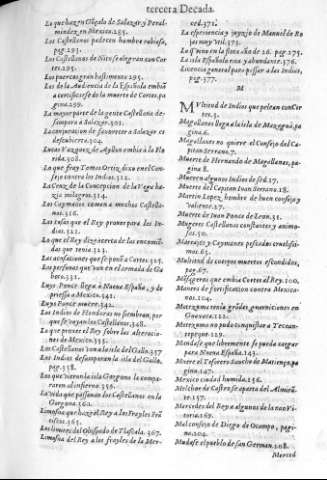 tercera Decada.
Lo que hazen Gõçalo de Salazar, y Peral-
mindez en Mexico. 285.
Los Castellanos padecen hambre rabiosa,
pag. 293.
Los Castellanos de Nito se alegran con Cor
tes. 293.
Los puercos gran bastimento. 295.
Los de la Audiencia de la Española embiã
a certificarse de la muerte de Cortes. pa
gina. 299.
La mayor parte de la gente Castellana de-
sampara a Salazar. 301.
La conjuracion de favorecer a Salazar es
descubierta. 304.
Lucas Vazquez de Ayllon embia a la Flo
rida. 308.
Lo que fray Tomas Ortiz dixo en el Con-
sejo contra los Indios. 312.
La Cruz de la Concepcion de la Vega ha-
zia milagros. 314.
Los Caymanes comen a muchos Castella-
nos. 316.
Lo que el Rey
dize acerca de las encomiẽ-
das que tenia. 321.
Las acusaciones que se ponẽ a Cortes. 325.
Las personas que van en el armada de Ga
boto. 331.
Luys Ponce llega a Nueva España, y de
priessa a Mexico. 341.
Luys Ponce muere. 342.
Los Indios de Honduras no siembran, por
que se vayan los Castellanos. 348.
Lo que provee el Rey sobre las alteracio-
nes de Mexico. 355.
Los Castellanos van a la isla del Gallo. 357
Los Indios desamparan la isla del Gallo.
pag. 358.
Los que vieron la isla Gorgona la compa-
raron al infierno. 359.
La vida que passavan los Castellanos en la
Gorgona. 362.
Limosna que haze el Rey a los Frayles Frã
ciscos. 365.
Los limites del Obispado de Tlascala. 367.
Limosna del Rey a los frayles de la Mer-
ced. 371.
La esperiencia y juyzio de Manuel de Ro
jas muy util. 373.
La isla Española rica y abundante. 376.
Licencia general para passar a las Indias,
pag. 377.
M
Multitud de Indios que pelean con Cor
tes. 3.
Magallanes llega a la isla de
pa
gina. 6.
Magallanes no quiere el Consejo del Ca-
pitan Serrano. 7.
Muerte de Hernando de Magallanes, pa
gina 8.
Mueren algunos Indios de sed. 17.
Muerte del Capitan Juan Serrano. 18.
Martin Lopez, hombre de buen consejo y
valiente. 27.
Muerte de Juan Ponce de Leon. 31.
Mugeres Castellanas constantes y animo-
sas. 50.
crudelis-
simos. 63.
Multitud de cuerpos muertos escondidos,
pag. 67.
que embia Cortes al Rey. 100.
Motores de fortificacion contra Mexica-
nos. 104.
en
112.
no pudo conquistar a Tecoan-
tepeque. 123.
Mandase que libremente se pueda cargar
para Nueva España. 143.
Muere el Tesorero Sancho de Matienço. pa
gina. 147.
Mexico ciudad humida. 156.
Melchor de Castro se aparta del Almirã-
te. 157.
Mercedes del Rey a algunos de la nao Vi-
toria. 169.
Mal consejo de Diego de Ocampo, pagi-
na. 204.
Mudase el pueblo de san German. 208.
Merced